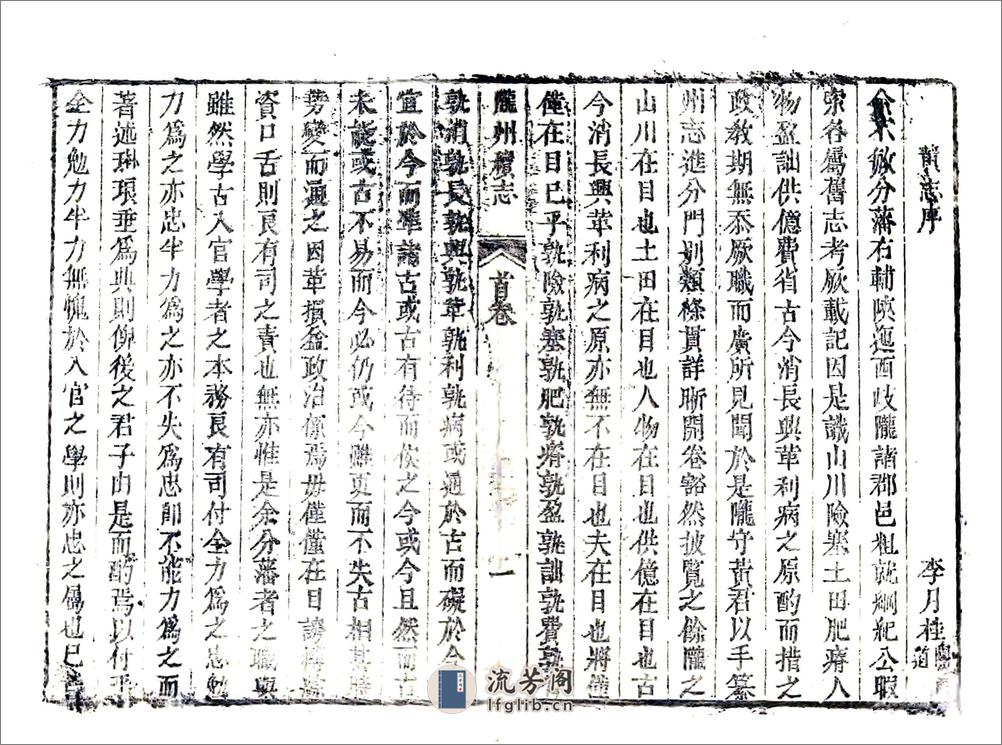 舊志序 李月桂 道
余不敏分藩右輔陝迤西岐隴諸郡邑粗就綱紀公暇
索各屬舊志考厥載記因是識山川險塞土田肥瘠人
物盈詘供億費省古今消長興革利病之原酌而措之
政教期無忝厥職而廣所見聞於是隴守黃君以手纂
州志進分門別類條貫詳晰開卷豁然披覽之餘隴之
山川在目也土田在目也人物在目也供億在目也古
今消長興革利病之原亦無不在目也夫在目也將僅
僅在目已乎孰險孰塞孰肥孰瘠孰盈孰詘孰費孰
隴州續志 首卷 一
孰消孰長孰興孰革孰利孰病或通於古而礙於今
宜於今而準諸古或古有待而俟之今或今且然而古
未能或古不易而今必仍或今雖更而不失古相其時
勢變而通之因革損益政治係焉毋僅僅在目
資口舌則良有司之責也無亦惟是余分藩者之職與
雖然學古入官學者之本務良有司付全力爲之忠勉
力爲之亦忠半力爲之亦不失爲忠即不能力爲之而
著述琳琅垂爲典則俾後之君子由是而酌焉以付乎
全力勉力半力無愧於入官之學則亦忠之屬也已